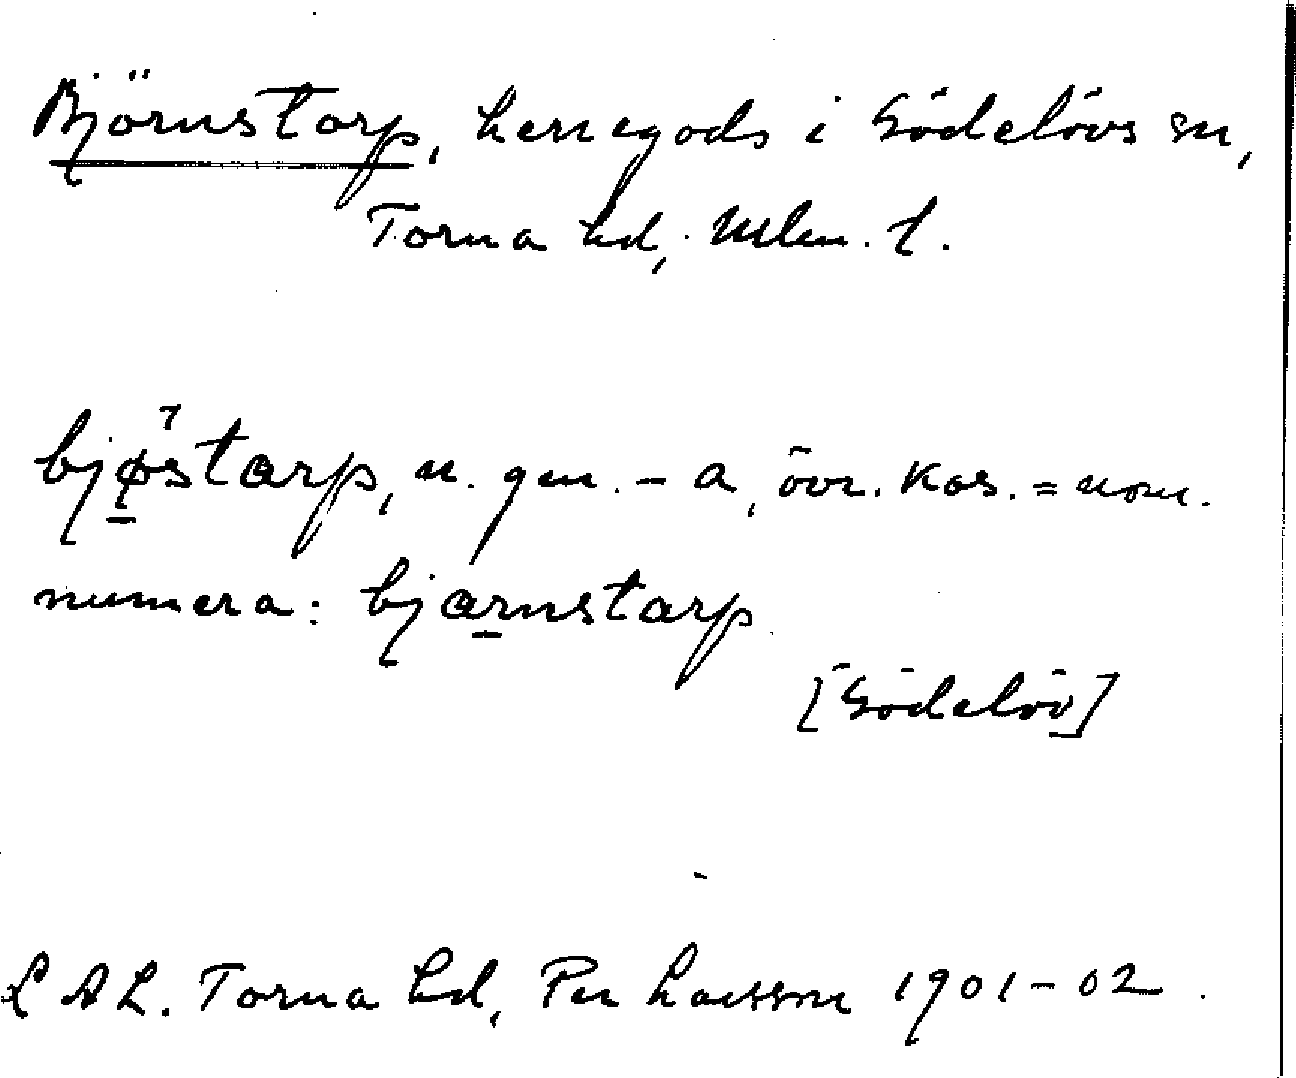 Björnstorp, herregods i Gödelövs sn,
Torna hd, Mlm. l.
bjøstarp, n. gen. - a, övr. kas. = nom.
numera: bjarnstarp
[Gödelöv]
LAL. Torna hd, Per Larsson 1901-02.